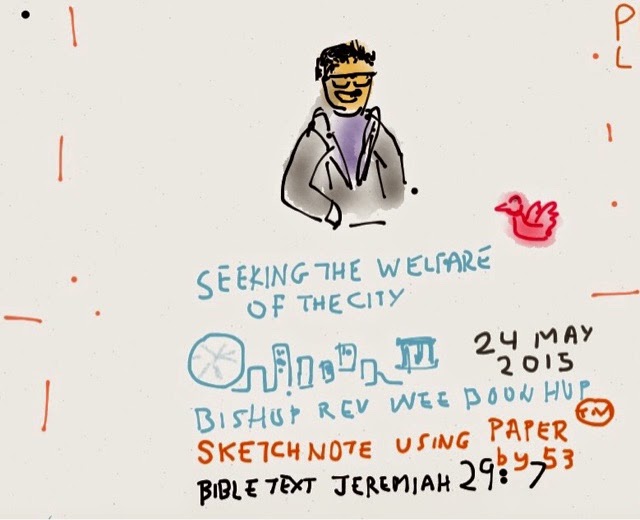 P
L
SEEKING THE WELFARE
OF THE CITY
24 MAY
2015
BISHUP REV WEE BOON HUP
SKETCHNOTE USING PAPER TM
by 53
BIBLE TEXT JEREMIAH 29:7